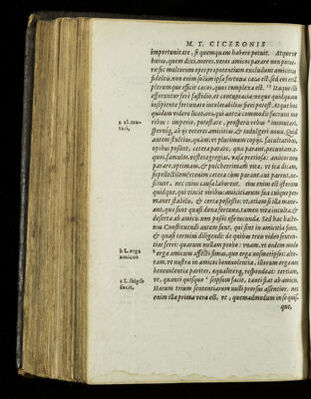 M. T. CICERONIS
importunitate, si quemquam habere potuit. Atque ut
huius, quem dixi, mores, veros amicos parare non potue-
re: sic multorum opes praepotentium excludunt amicitias
fideleis. non enim solùm ipsa fortuna caeca est, sed eos etiã
plerumque efficit caecos, quos complexa est. Itaque illi
efferuntur ferè fastidio, et contumacia: neque quidquam
insipiente fortunato intolerabilius fieri potest. Atque hoc
quidem videre licet, eos, qui antea commodis fuerunt mo
ribus: imperio, potestate, prosperis rebus immutari,
sperniq; ab iis veteres amicitias, & indulgeri nouis. Quid
autem stultius, quàm, et plurimum copiis, facultatibus,
opibus possint, cetera parare, quae parantur, pecunia, e-
quos, famulos, vestem egregiam, vasa pretiosa: amicos non
parare, optimam, & pulcherrimam vitae, vt ita dicam,
supellectilem? etenim cetera cùm parant, cui parent, ne-
sciunt, nec cuius causa laborent. eius enim est istorum
quidque, qui vincit viribus: amicitiarum sua cuique per-
manet stabilis, & certa possessio: vt, etiam si illa mane-
ant, quae sunt quasi dona fortunae, tamen vita inculta, &
deserta ab amicis non possit esse iucunda. Sed haec hacte-
nus. Constituendi autem sunt, qui sint in amicitia fines,
& quasi termini diligendi: de quibus treis video senten-
tias ferri: quarum nullam probo: vnam, vt eodem modo
erga amicum affecti simus, quo erga nosmetipsos: alte-
ram, vt nostra in amicos beneuolentia, illorum erga nos
beneuolentiae pariter, aequaliterq; respondeat: tertiam,
vt, quanti quisque seipsum facit, tanti fiat ab amicis.
Harum trium sententiarum nulli prorsus assentior. nec
enim illa prima vera est, vt, quemadmodum in se quis-
que,
b L. erga
amicos